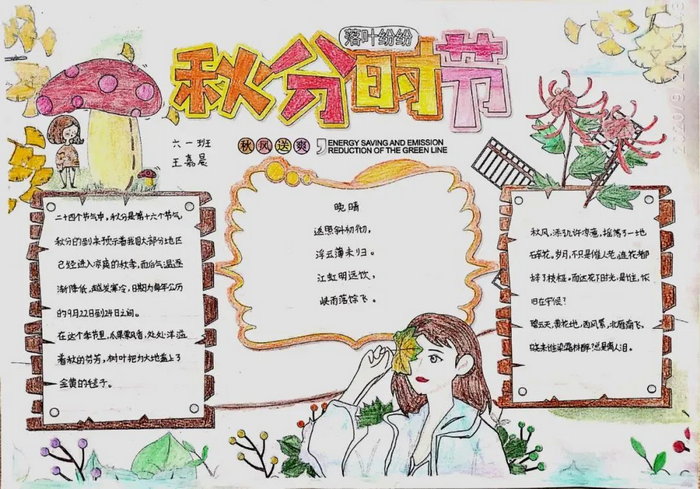 落叶纷纷
秋分时节
六一班
王嘉晨
秋风送爽
ENERGY SAVING AND EMISSION
REDUCTION OF THE GREEN LINE
二十四个节气中，秋分是第十六个节气，
秋分的到来预示着我国大部分地区
已经进入凉爽的秋季，而后气温逐
渐降低，越发寒冷，日期为每年公历
的9月22日到24日之间。
在这个季节里，瓜果飘香，处处洋溢
着秋的芬芳，树叶把为大地盖上了
金黄的毯子。
晚晴
返照斜初彻，
浮云薄未归。
江虹明远饮，
峡雨落馀飞。
秋风，添几许凉意，摇落了一地
碎花，岁月，不只是催人老，连花都
旧在何候？
碧云天，黄花地，西风紧，北雁南飞，
晓来谁染霜林醉？总是离人泪。